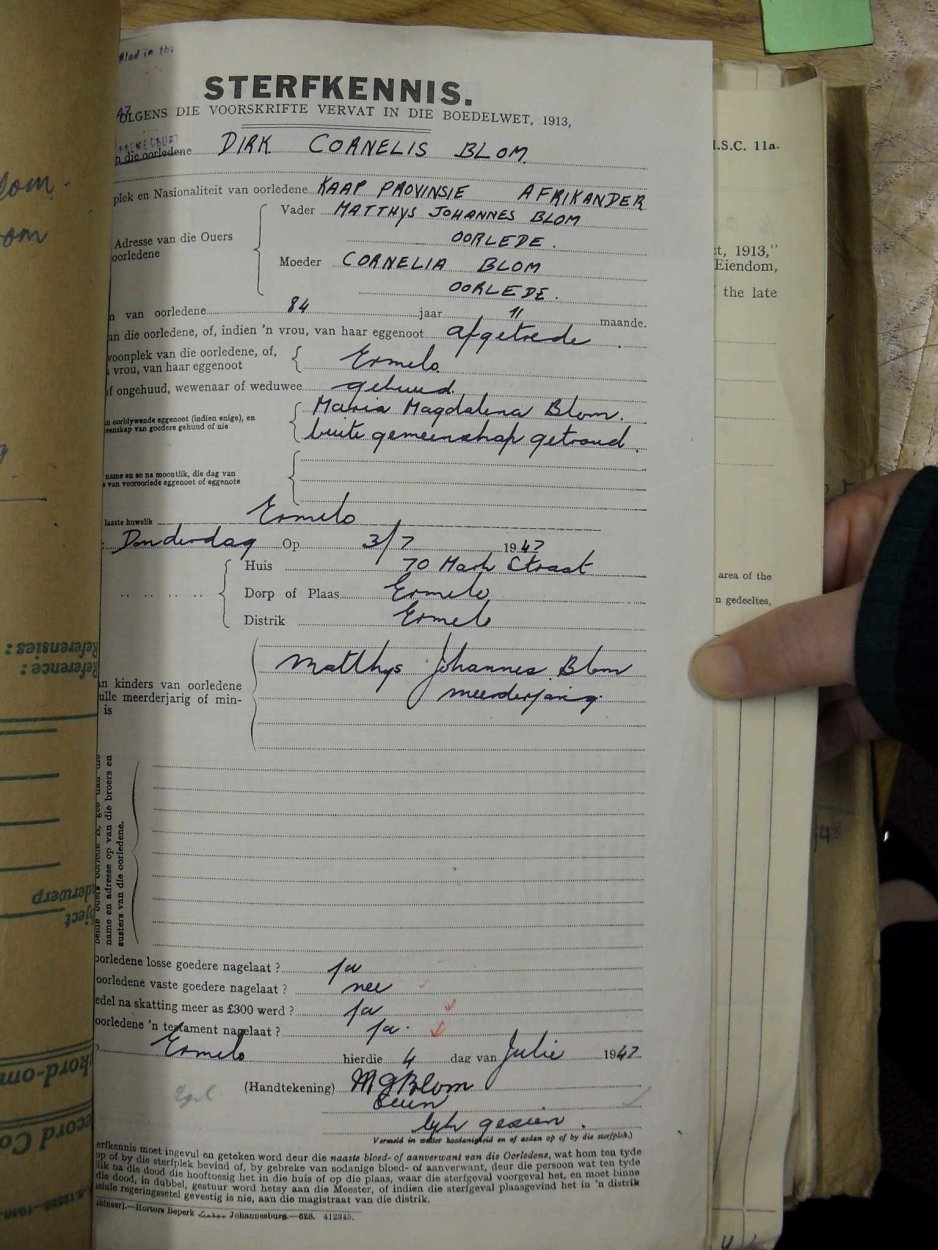 filed in the
STERFKENNIS.
OLGENS DIE VOORSKRIFTE VERVAT IN DIE BOEDELWET, 1913,
n die oorledene DIRK CORNELIS BLOM
plek en Nasionaliteit van oorledene KAAP PROVINSIE AFRIKANDER
Vader MATTHYS JOHANNES BLOM
Adresse van die Ouers
oorledene
OORLEDE.
Moeder CORNELIA BLOM
OORLEDE.
n van oorledene 84 jaar 11 maande.
an die oorledene, of, indien 'n vrou, van haar eggenoot afgetrede
woonplek van die oorledene, of,
vrou, van haar eggenoot Ermelo
of ongehuud, wewenaar of weduwee gehuud
n oorblywende eggenoot (indien enige), en Maria Magdalena Blom.
eenskap van goedere gehuud of nie buite gemeenskap getroud.
name en so na moontlik, die dag van
van vooroorlede eggenoot of eggenote
laaste huwelik Ermelo
Donderdag Op 3/7 1947
Huis 70 Mark Straat
Dorp of Plaas Ermelo
Distrik Ermelo
Matthys Johannes Blom
n kinders van oorledene meerderjarig
ulle meerderjarig of min-
is
name en adresse op van die broers en
susters van die oorledene.
oorledene losse goedere nagelaat? Ja
oorledene vaste goedere nagelaat? nee
edel na skatting meer as £300 werd? Ja
oorledene 'n testament nagelaat? Ja.
Ermelo hierdie 4 dag van Julie 1947
(Handtekening) MJBlom
Seun
lyk gesien.
Vermeld in watter hoedanigheid en of aldan op of by die sterfplek.)
erfkennis moet ingevul en geteken word deur die naaste bloed- of aanverwant van die Oorledene, wat hom ten tyde
op of by die sterfplek bevind of, by gebreke van sodanige bloed- of aanverwant, deur die persoon wat ten tyde
lik na die dood die hooftoesig het in die huis of op die plaas, waar die sterfgeval voorgeval het, en moet binne
die dood, in dubbel, gestuur word hetsy aan die Meester, of indien die sterfgeval plaasgevind het in 'n distrik
siale regeringsetel gevestig is nie, aan die magistraat van die distrik.
Hortors Beperk Johannesburg.—628. 412345.
I.S.C. 11a.
t, 1913,"
Eiendom,
the late
area of the
n gedeeltes,
om.
om
Referensies:
Reference:
derwerp
bject
kord-om
ecord Co